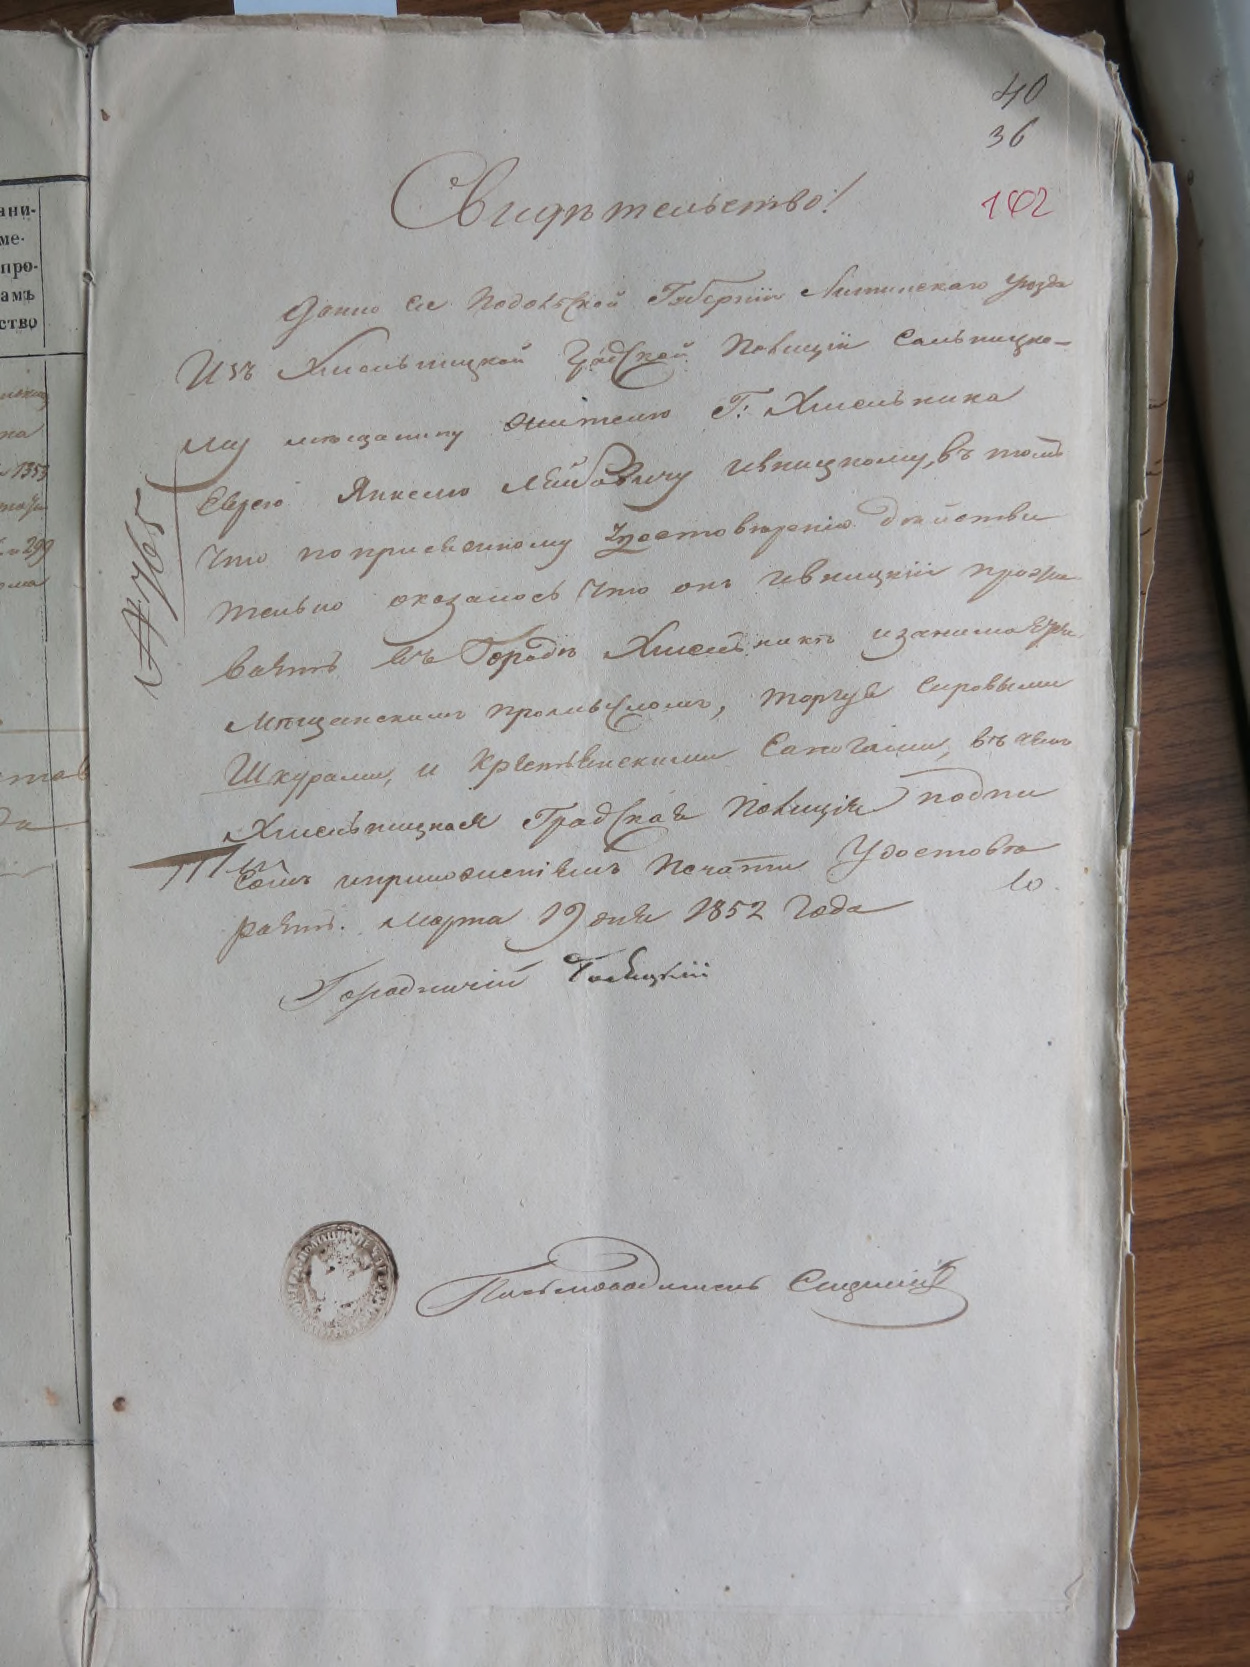 40
36
102
Свидѣтельство!
Дано сіе Подольской Губерніи Литинскаго Уѣзда
Изъ Хмельницкой Градской Полиціи Сальницко-
му мѣщанину жителю Г: Хмельника
Еврею Янкелю Лейбовичу Ивницкому, въ томъ
Что поприсяжному Удостовѣренію дѣйстви
тельно оказалось Что онъ Ивницкій прожи
ваетъ въ Городѣ Хмельникѣ изанимаетси
Мѣщанскимъ промысломъ, торгуя Сировыми
Шкурами, и Крестьянскими Сапогами, въ чемъ
Хмельницкая Градская Полиція подпи
сомъ иприложеніемъ Печати Удостовѣ
ряетъ. Марта 19 дня 1852 Года
Городничій
Письмоводитель
№ 765
ани-
ме-
про-
амъ
ство
на
1353
299